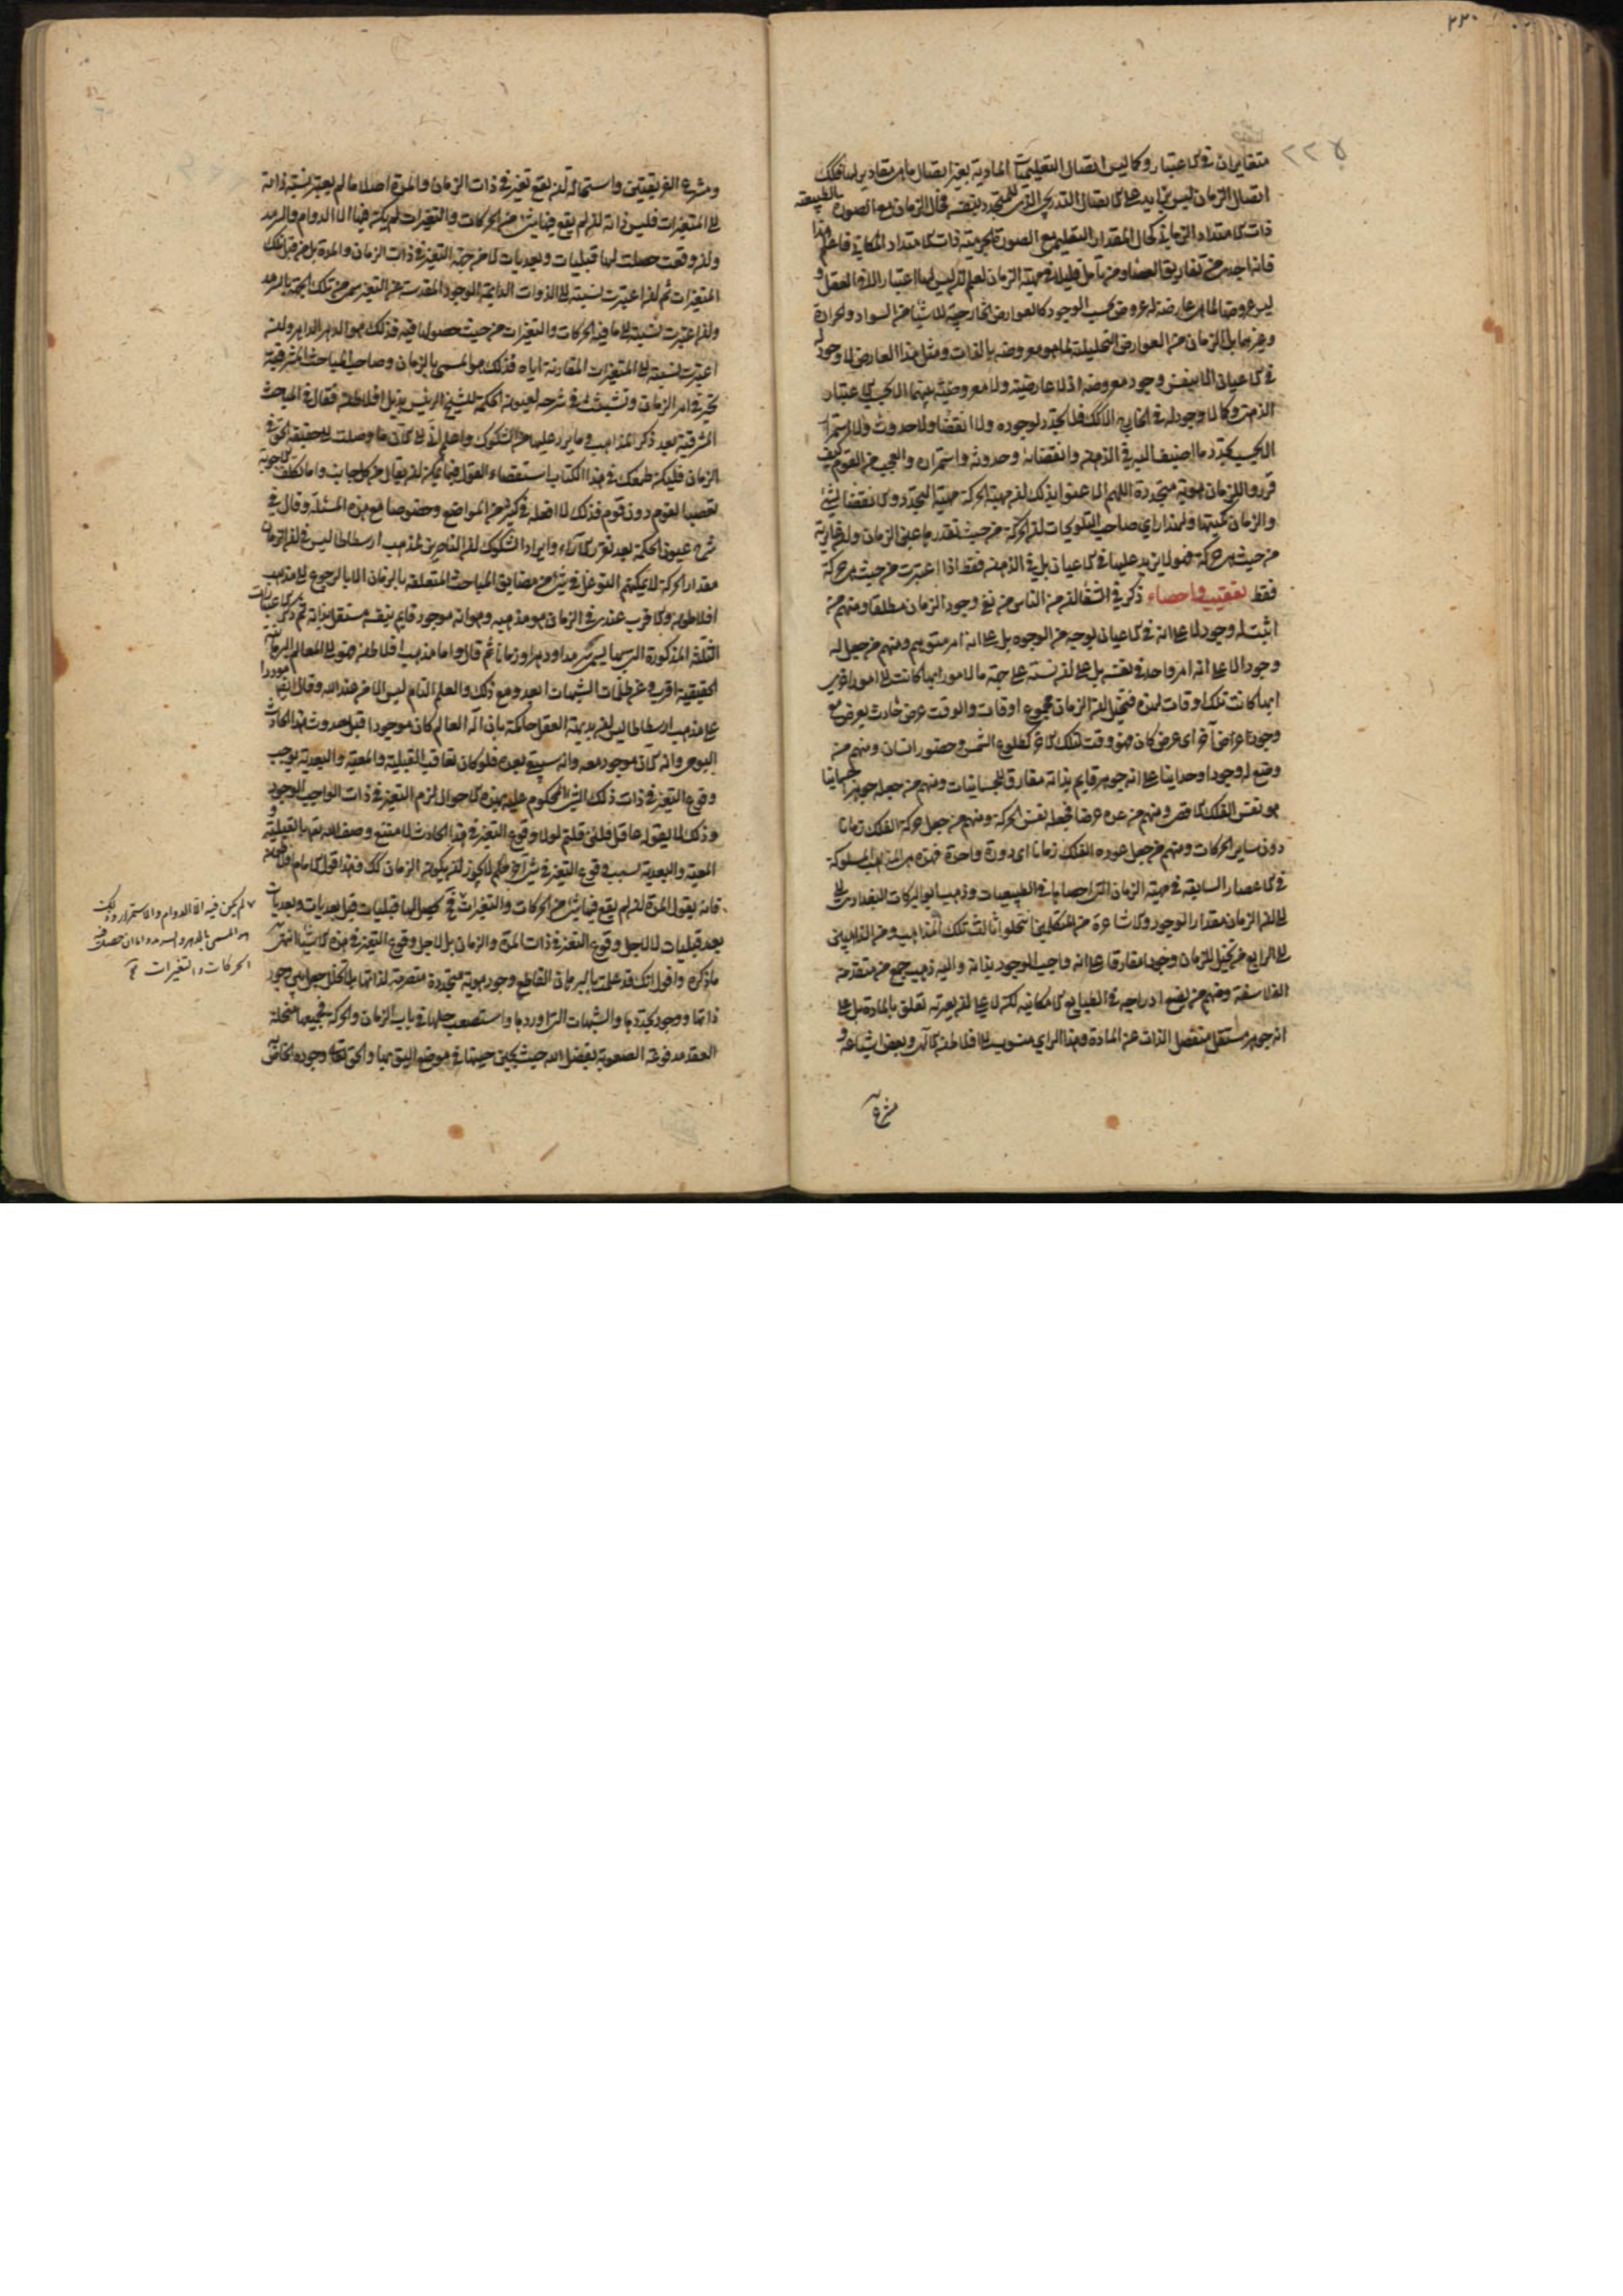 ٢٢٠
٢٢٥
متغايران في الاعتبار وكما ليس اتصال التعليميات المادية بغير اتصال ما هي مقادير لها فكذلك
اتصال الزمان ليس بزايد على الاتصال التدريجي الذي للمتجدد بنفسه فحال الزمان مع الصورة الطبيعية
ذات الامتداد الزماني كحال المقدار التعليمي مع الصورة الجرمية ذات الامتداد المكاني فاعلم هذا
فانه اجدى من تفاريق العصا ومن تأمل قليلا في مهية الزمان يعلم ان ليس لها اعتبار الا في العقل و
ليس عروضها لما هي عارضة له عروض بحسب الوجود كالعوارض الخارجية للاشياء من السواد والحرارة
وغيرهما بل الزمان من العوارض التحليلية لما هو معروضه بالذات ومثل هذا العارض لا وجود له
في الاعيان الا بنفس وجود معروضه اذ لا عارضية ولا معروضية بينهما الا بحسب الاعتبار
الذهني وكما لا وجود له في الخارج الا كذلك فلا تجدد لوجوده ولا انقضاء ولا حدوث ولا استمرار
الا بحسب تجدد ما اضيف اليه في الذهن وانقضائه وحدوثه واستمراره والعجب من القوم كيف
قرروا للزمان هوية متجددة اللهم الا ان عنوا بذلك ان مهية الحركة مهية التجدد والانقضاء لشيء
والزمان كميتها ولهذا راى صاحب التلويحات ان الحركة من حيث تقدرها عين الزمان وان غايرته
من حيث هي حركة فهو لا يزيد عليها في الاعيان بل في الذهن فقط اذا اعتبرت من حيث هي حركة
فقط تعقيب واحصاء ذكر في الشفا ان من الناس من نفى وجود الزمان مطلقا ومنهم من
اثبت له وجودا لا على انه في الاعيان بوجه من الوجوه بل على انه امر متوهم ومنهم من جعل له
وجودا لا على انه امر واحد في نفسه بل على انه نسبة على جهة ما لامور ايها كانت الى امور اخرى
ايها كانت تلك اوقات لهذه فتخيل ان الزمان مجموع اوقات والوقت عرض حادث يعرض مع
وجود عرض آخر اى عرض كان فهو وقت لذلك الآخر كطلوع الشمس وحضور انسان ومنهم من
وضع له وجودا وحدانيا على انه جوهر قايم بذاته مفارق للجسمانيات ومنهم من جعله جوهرا جسمانيا
هو نفس الفلك الاقصى ومنهم من عده عرضا فجعله نفس الحركة ومنهم من جعل حركة الفلك زمانا
دون ساير الحركات ومنهم من جعل عودة الفلك زمانا اى دورة واحدة فهذه هي المذاهب المسلوكة
في الاعصار السابقة في مهية الزمان التي احصاها في الطبيعيات وذهب ابو البركات البغدادي الى
ان الزمان مقدار الوجود والاشاعرة من المتكلمين انتحلوا ثالث تلك المذاهب ومن الذاهبين
الى الرابع من تخيل للزمان وجودا مفارقا على انه واجب الوجود بذاته واليه ذهب جمع من متقدمة
الفلاسفة ومنهم من يضع ادراجه في الطبايع الامكانية لكن لا على انه يعتريه تعلق بالمادة بل على
انه جوهر مستقل منفصل الذات عن المادة وهذا الراى منسوب الى افلاطن الالهى وبعض اشياعه و
مشرع
ومشرع الفريقين استحالة ان يقع تغير في ذات الزمان والمدة اصلا ما لم يعتبر نسبة ذاته
الى المتغيرات فليس ذاته ان لم يقع فيها شيء من الحركات والتغيرات لم يكن فيها الا الدوام والسرمد
وان وقعت حصلت لها قبليات وبعديات لا من جهة التغير في ذات الزمان والمدة بل من قبل تلك
المتغيرات ثم ان اعتبرت نسبته الى الذوات الدايمة الوجود المقدسة عن التغير سمى من تلك الجهة بالسرمد
وان اعتبرت نسبته الى ما فيه الحركات والتغيرات من حيث حصولها فيه فذلك هو الدهر الداهر وان
اعتبرت نسبته الى المتغيرات المقارنة اياه فذلك هو المسمى بالزمان وصاحب المباحث المشرقية
تحير في امر الزمان وتشبث في شرحه لعيون الحكمة للشيخ الرئيس بذيل افلاطن فقال في المباحث
المشرقية بعد ذكر المذاهب وما يرد عليها من الشكوك واعلم انى الى الآن ما وصلت الى حقيقة الحق في
الزمان فليكن طمعك من هذا الكتاب استقصاء القول فيما يمكن ان يقال من كل جانب واما تكلف الاجوبة
تعصبا لقوم دون قوم فذلك لا افعله في كثير من المواضع وخصوصا مع هذه المسئلة وقال في
شرح عيون الحكمة بعد تقرير الآراء وايراد الشكوك ان الناصرين لمذهب ارسطاطاليس في ان الزمان
مقدار الحركة لا يمكنهم التوغل في شيء من مضايق المباحث المتعلقة بالزمان الا بالرجوع الى مذهب
افلاطون والاقرب عندى في الزمان هو مذهبه وهو انه موجود قايم بنفسه مستقل بذاته ثم ذكر الاعتبارات
الثلثة المذكورة التي بها يسمى سرمدا ودهرا وزمانا ثم قال واما مذهب افلاطن فهو الى المعالم البرهانية
الحقيقية اقرب وعن ظلمات الشبهات ابعد ومع ذلك والعلم التام ليس الا من عند الله وقال ايضا موردا
على مذهب ارسطاطاليس ان بديهة العقل حاكمة بان اله العالم كان موجودا قبل حدوث هذا الحادث
اليومى وانه الآن موجود معه وانه سيبقى بعده فلو كان تعاقب القبلية والمعية والبعدية يوجب
وقوع التغير في ذات ذلك الشيء المحكوم عليه بهذه الاحوال لزم التغير في ذات الواجب الوجود
وذلك لا يقوله عاقل فلئن قلتم لولا وقوع التغير في هذا الحادث لامتنع وصف الله تعالى بالقبلية و
المعية والبعدية بسبب وقوع التغير في شيء آخر فلم لا يجوز ان يكون الزمان كذلك فهذا قول الامام افلاطن
فانه يقول المدة ان لم يقع فيها شيء من الحركات والتغيرات فح يحصل لها قبليات قبل بعديات وبعديات
بعد قبليات لا لاجل وقوع التغير في ذات المدة والزمان بل لاجل وقوع التغير في هذه الاشياء انتهى
ما ذكره واقول انك قد علمت بالبرهان القاطع وجود هوية متجددة متصرمة لذاتها بلا تخلل جعل بين وجود
ذاتها ووجود تجددها والشبهات التي اوردها واستصعب حلها في باب الزمان والحركة فجميعها منحلة
العقد مدفوعة الصعوبة بفضل الله حيث يحين حينها في موضع اليق بها والحق تعالى وجوده الخاص
لم يكن فيه الا الدوام والاستمرار وذلك
هو المسمى بالدهر والسرمد واما ان حصلت فيه
الحركات والتغيرات فح